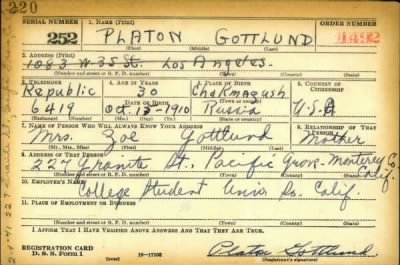 220
SERIAL NUMBER 1. NAME (Print) ORDER NUMBER
252 PLATON GOTTLUND 1492
(First) (Middle) (Last)
2. ADDRESS (Print)
1083 W-35 St. Los Angeles.
(Number and street or R. F. D. number) (Town) (County) (State)
3. TELEPHONE 4. AGE IN YEARS 5. PLACE OF BIRTH 6. COUNTRY OF CITIZENSHIP
Republic 30 Chakmagush
DATE OF BIRTH (Town or county)
6419 Oct. 13-1910 Russia U.S.A
(Exchange) (Number) (Mo.) (Day) (Yr.) (State or country)
7. NAME OF PERSON WHO WILL ALWAYS KNOW YOUR ADDRESS 8. RELATIONSHIP OF THAT PERSON
Mrs. Zoe Gottlund Mother
(Mr., Mrs., Miss) (First) (Middle) (Last)
9. ADDRESS OF THAT PERSON
227 Granite St., Pacific Grove-Monterey Co. Calif.
(Number and street or R. F. D. number) (Town) (County) (State)
10. EMPLOYER'S NAME
College Student Univ. So. Calif.
11. PLACE OF EMPLOYMENT OR BUSINESS
(Number and street or R. F. D. number) (Town) (County) (State)
I AFFIRM THAT I HAVE VERIFIED ABOVE ANSWERS AND THAT THEY ARE TRUE.
REGISTRATION CARD
D. S. S. Form 1 (over) 16-17105 Platon Gottlund
(Registrant's signature)